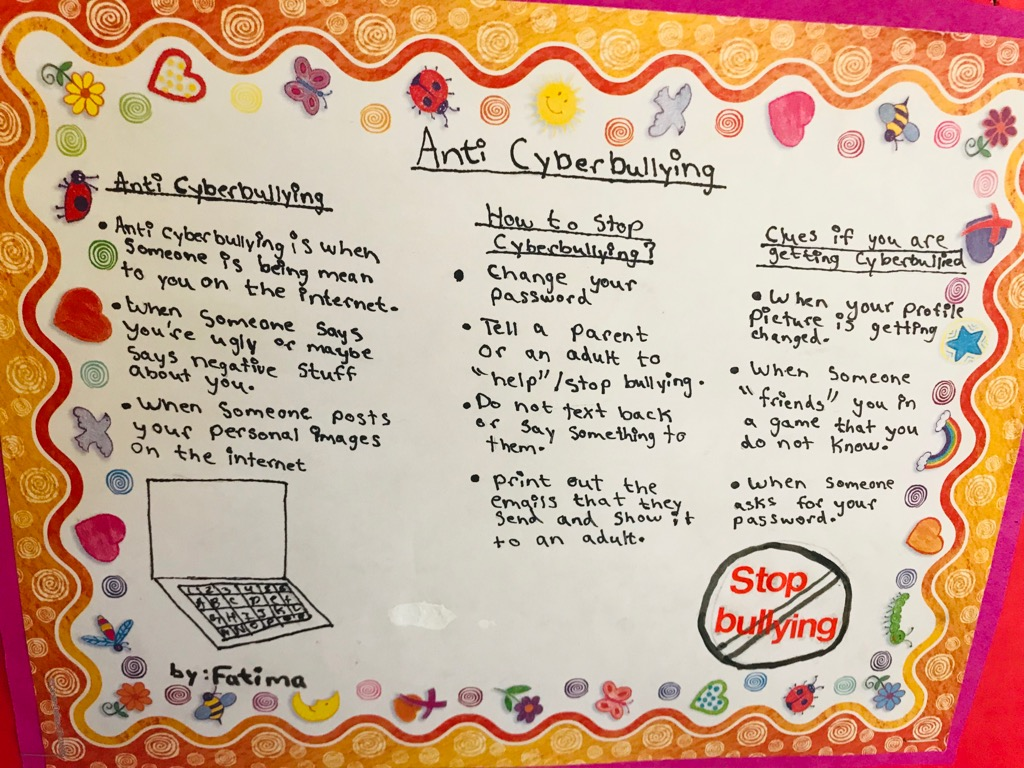 Anti Cyberbullying
Anti Cyberbullying
• Anti cyberbullying is when
someone is being mean
to you on the internet.
• When someone says
you're ugly or maybe
says negative stuff
about you.
• When someone posts
your personal images
on the internet
by: Fatima
How to stop
Cyberbullying?
• Change your
password
• Tell a parent
or an adult to
"help"/stop bullying.
• Do not text back
or say something to
them.
• print out the
emails that they
send and show it
to an adult.
Clues if you are
getting Cyberbullied
• When your profile
picture is getting
changed.
• When someone
"friends" you in
a game that you
do not know.
• When someone
asks for your
password.
Stop
bullying